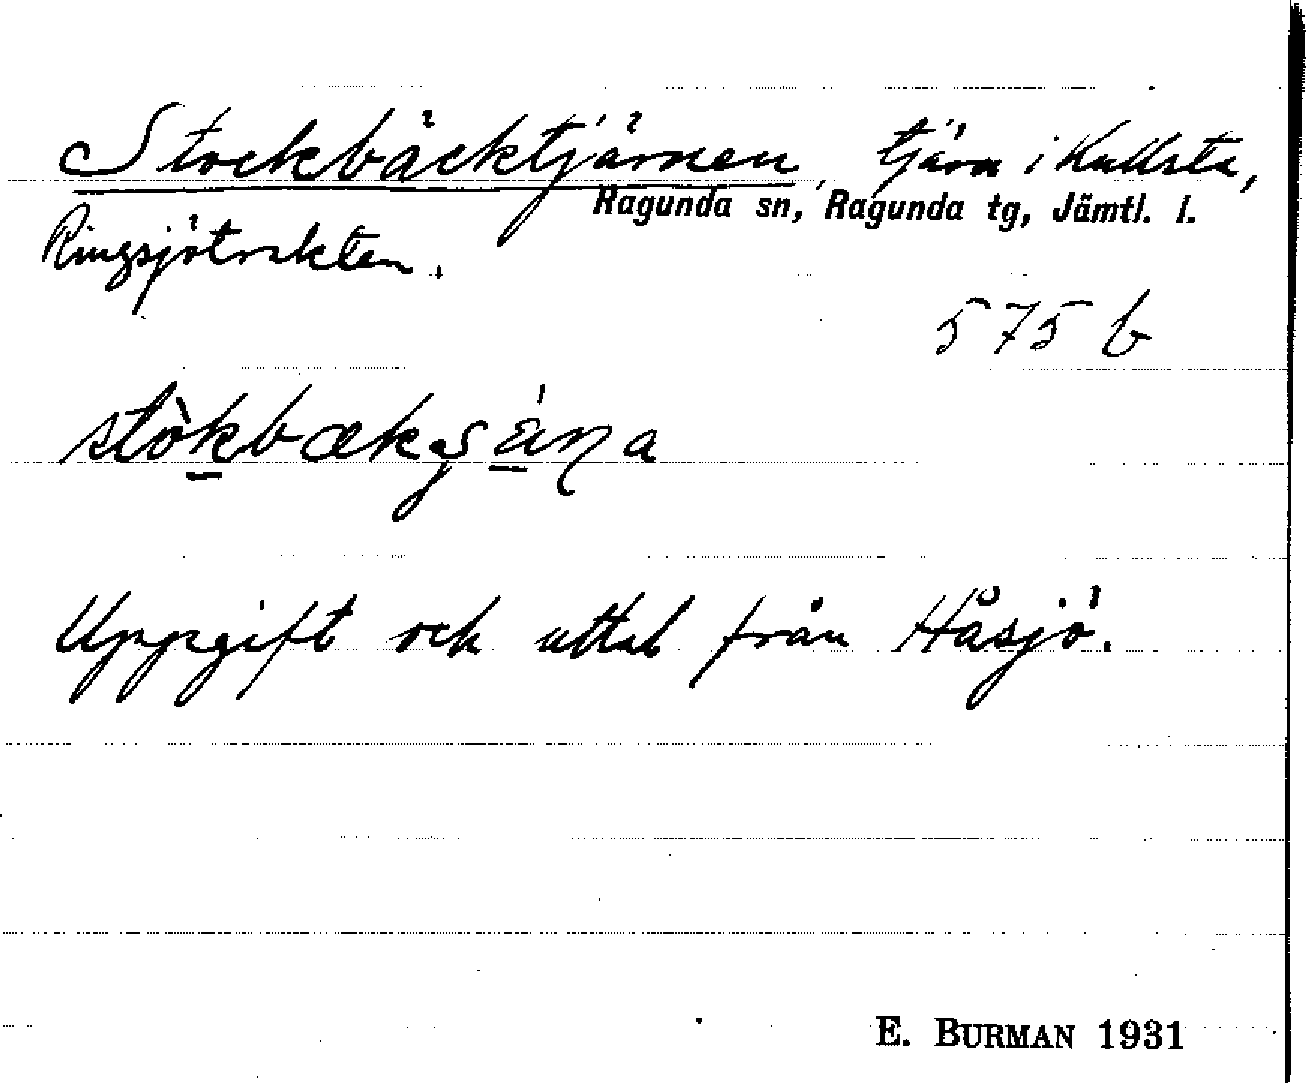 Stockbäcktjärnen, tjärn i Kullsta,
Ragunda sn, Ragunda tg, Jämtl. l.
Ringsjötrakten.
575 b
Uppgift och uttal från Håsjö.
E. BURMAN 1931